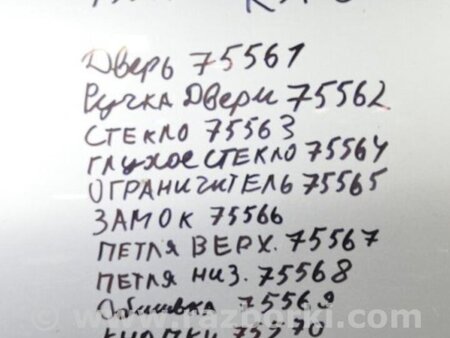 Дверь 75561
Ручка Двери 75562
СТЕКЛО 75563
ГЛУХОЕ СТЕКЛО 75564
ОГРАНИЧИТЕЛЬ 75565
ЗАМОК 75566
ПЕТЛЯ ВЕРХ. 75567
ПЕТЛЯ НИЗ. 75568
Обшивка 75569
КНОПКИ 75570
www.razborki.com